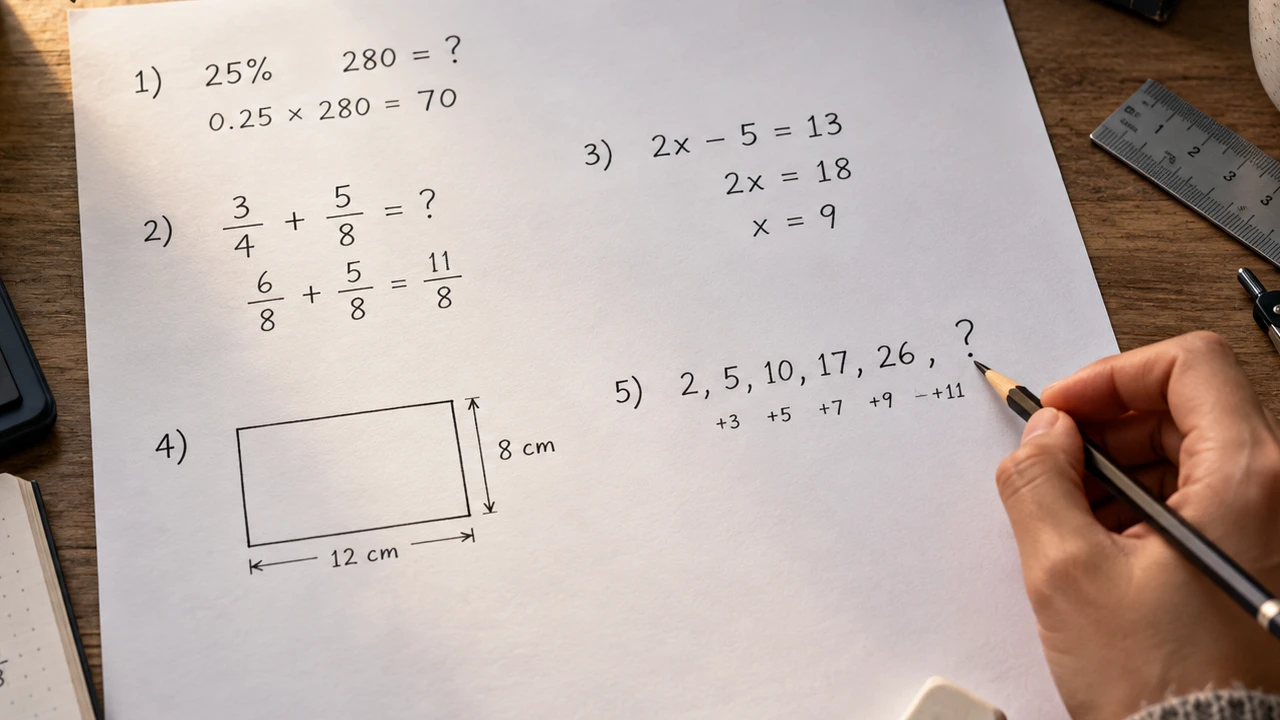 1) 25% 280 = ?
0.25 × 280 = 70
2) 3/4 + 5/8 = ?
6/8 + 5/8 = 11/8
3) 2x − 5 = 13
2x = 18
x = 9
4)
8 cm
12 cm
5) 2, 5, 10, 17, 26, ?
+3 +5 +7 +9 −+11
1 2 3 3